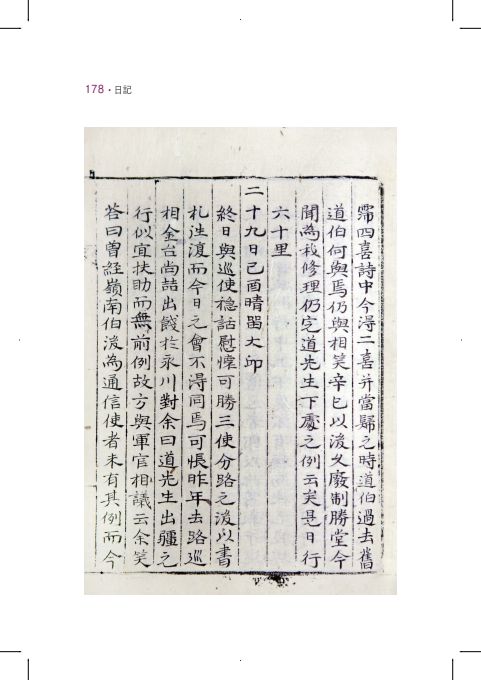 178 · 日記
霈四喜詩中今淂二喜并當歸之時道伯過去舊
道伯何與焉仍與相笑辛巳以後久廢制勝堂今
聞為我修理仍定道先生下處之例云矣是日行
六十里
二十九日己酉晴留大邱
終日與巡使穩話慰懷可勝三使分路之後以書
札往復而今日之會不淂同焉可悵昨年去路巡
相金台尚喆出餞扵永川對余曰道先生出疆之
行似宜扶助而無前例故方與軍官相議云余笑
答曰曽經嶺南伯後為通信使者未有其例而今